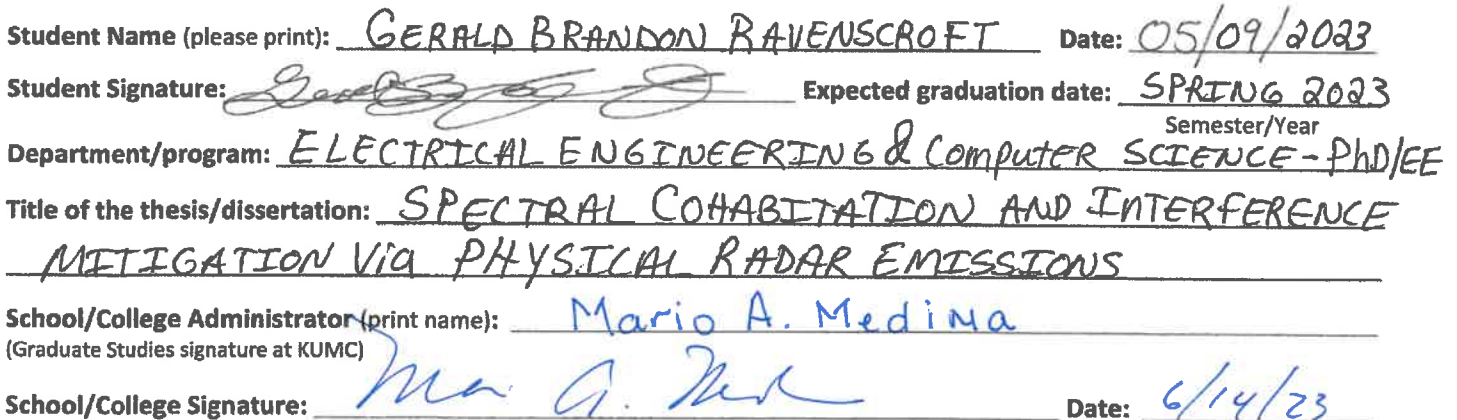 Student Name (please print): GERALD BRANDON RAVENSCROFT Date: 05/09/2023
Student Signature: Expected graduation date: SPRING 2023
Semester/Year
Department/program: ELECTRICAL ENGINEERING & COMPUTER SCIENCE - PhD/EE
Title of the thesis/dissertation: SPECTRAL COHABITATION AND INTERFERENCE
MITIGATION Via PHYSICAL RADAR EMISSIONS
School/College Administrator (print name): Mario A. Medina
(Graduate Studies signature at KUMC)
School/College Signature: Date: 6/14/23